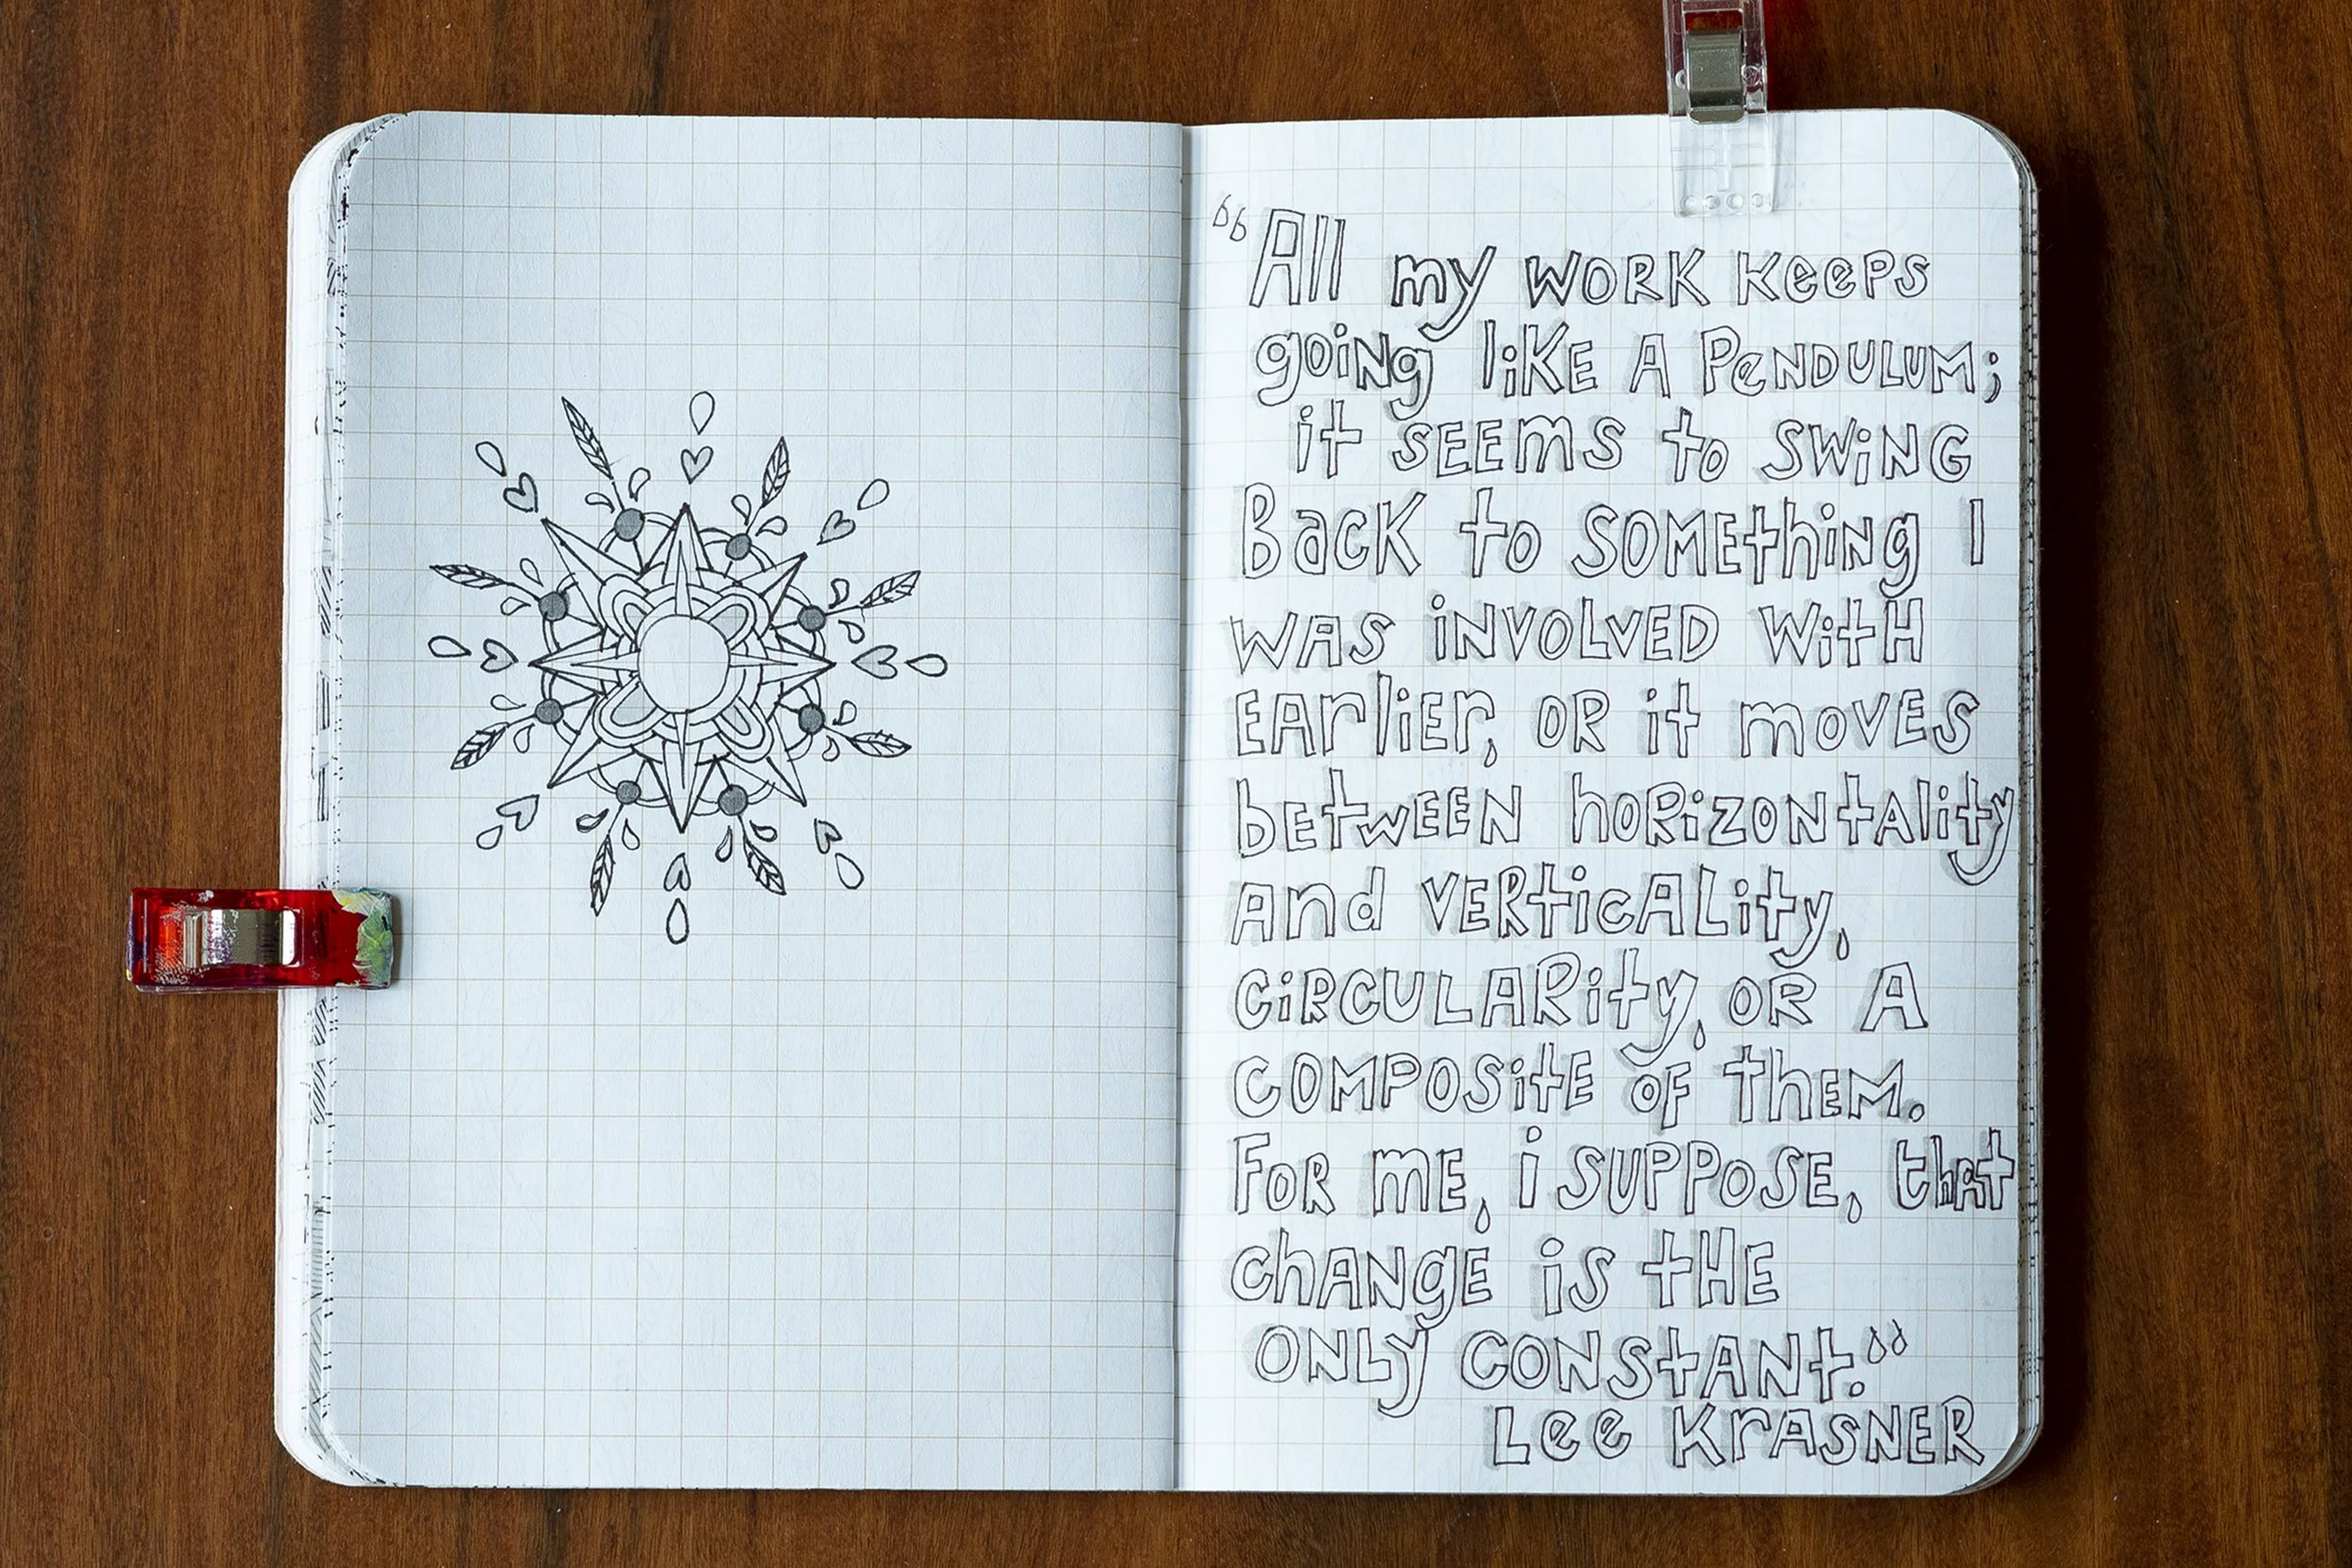 “All my WORK Keeps
going liKE A PeNDULUM;
it SEEmS to SWiNG
BacK to SOMEthiNg I
WAS iNVOLVED WitH
EArliEr, OR it mOVES
bEtwEEN hORiZONtAlity
And VERticALity,
CiRCULARity, OR A
COMPOSitE OF ThEM.
FOR mE, i SUPPOSE, thAt
chANgE iS tHE
ONLy CONStANt.”
Lee KrASNER